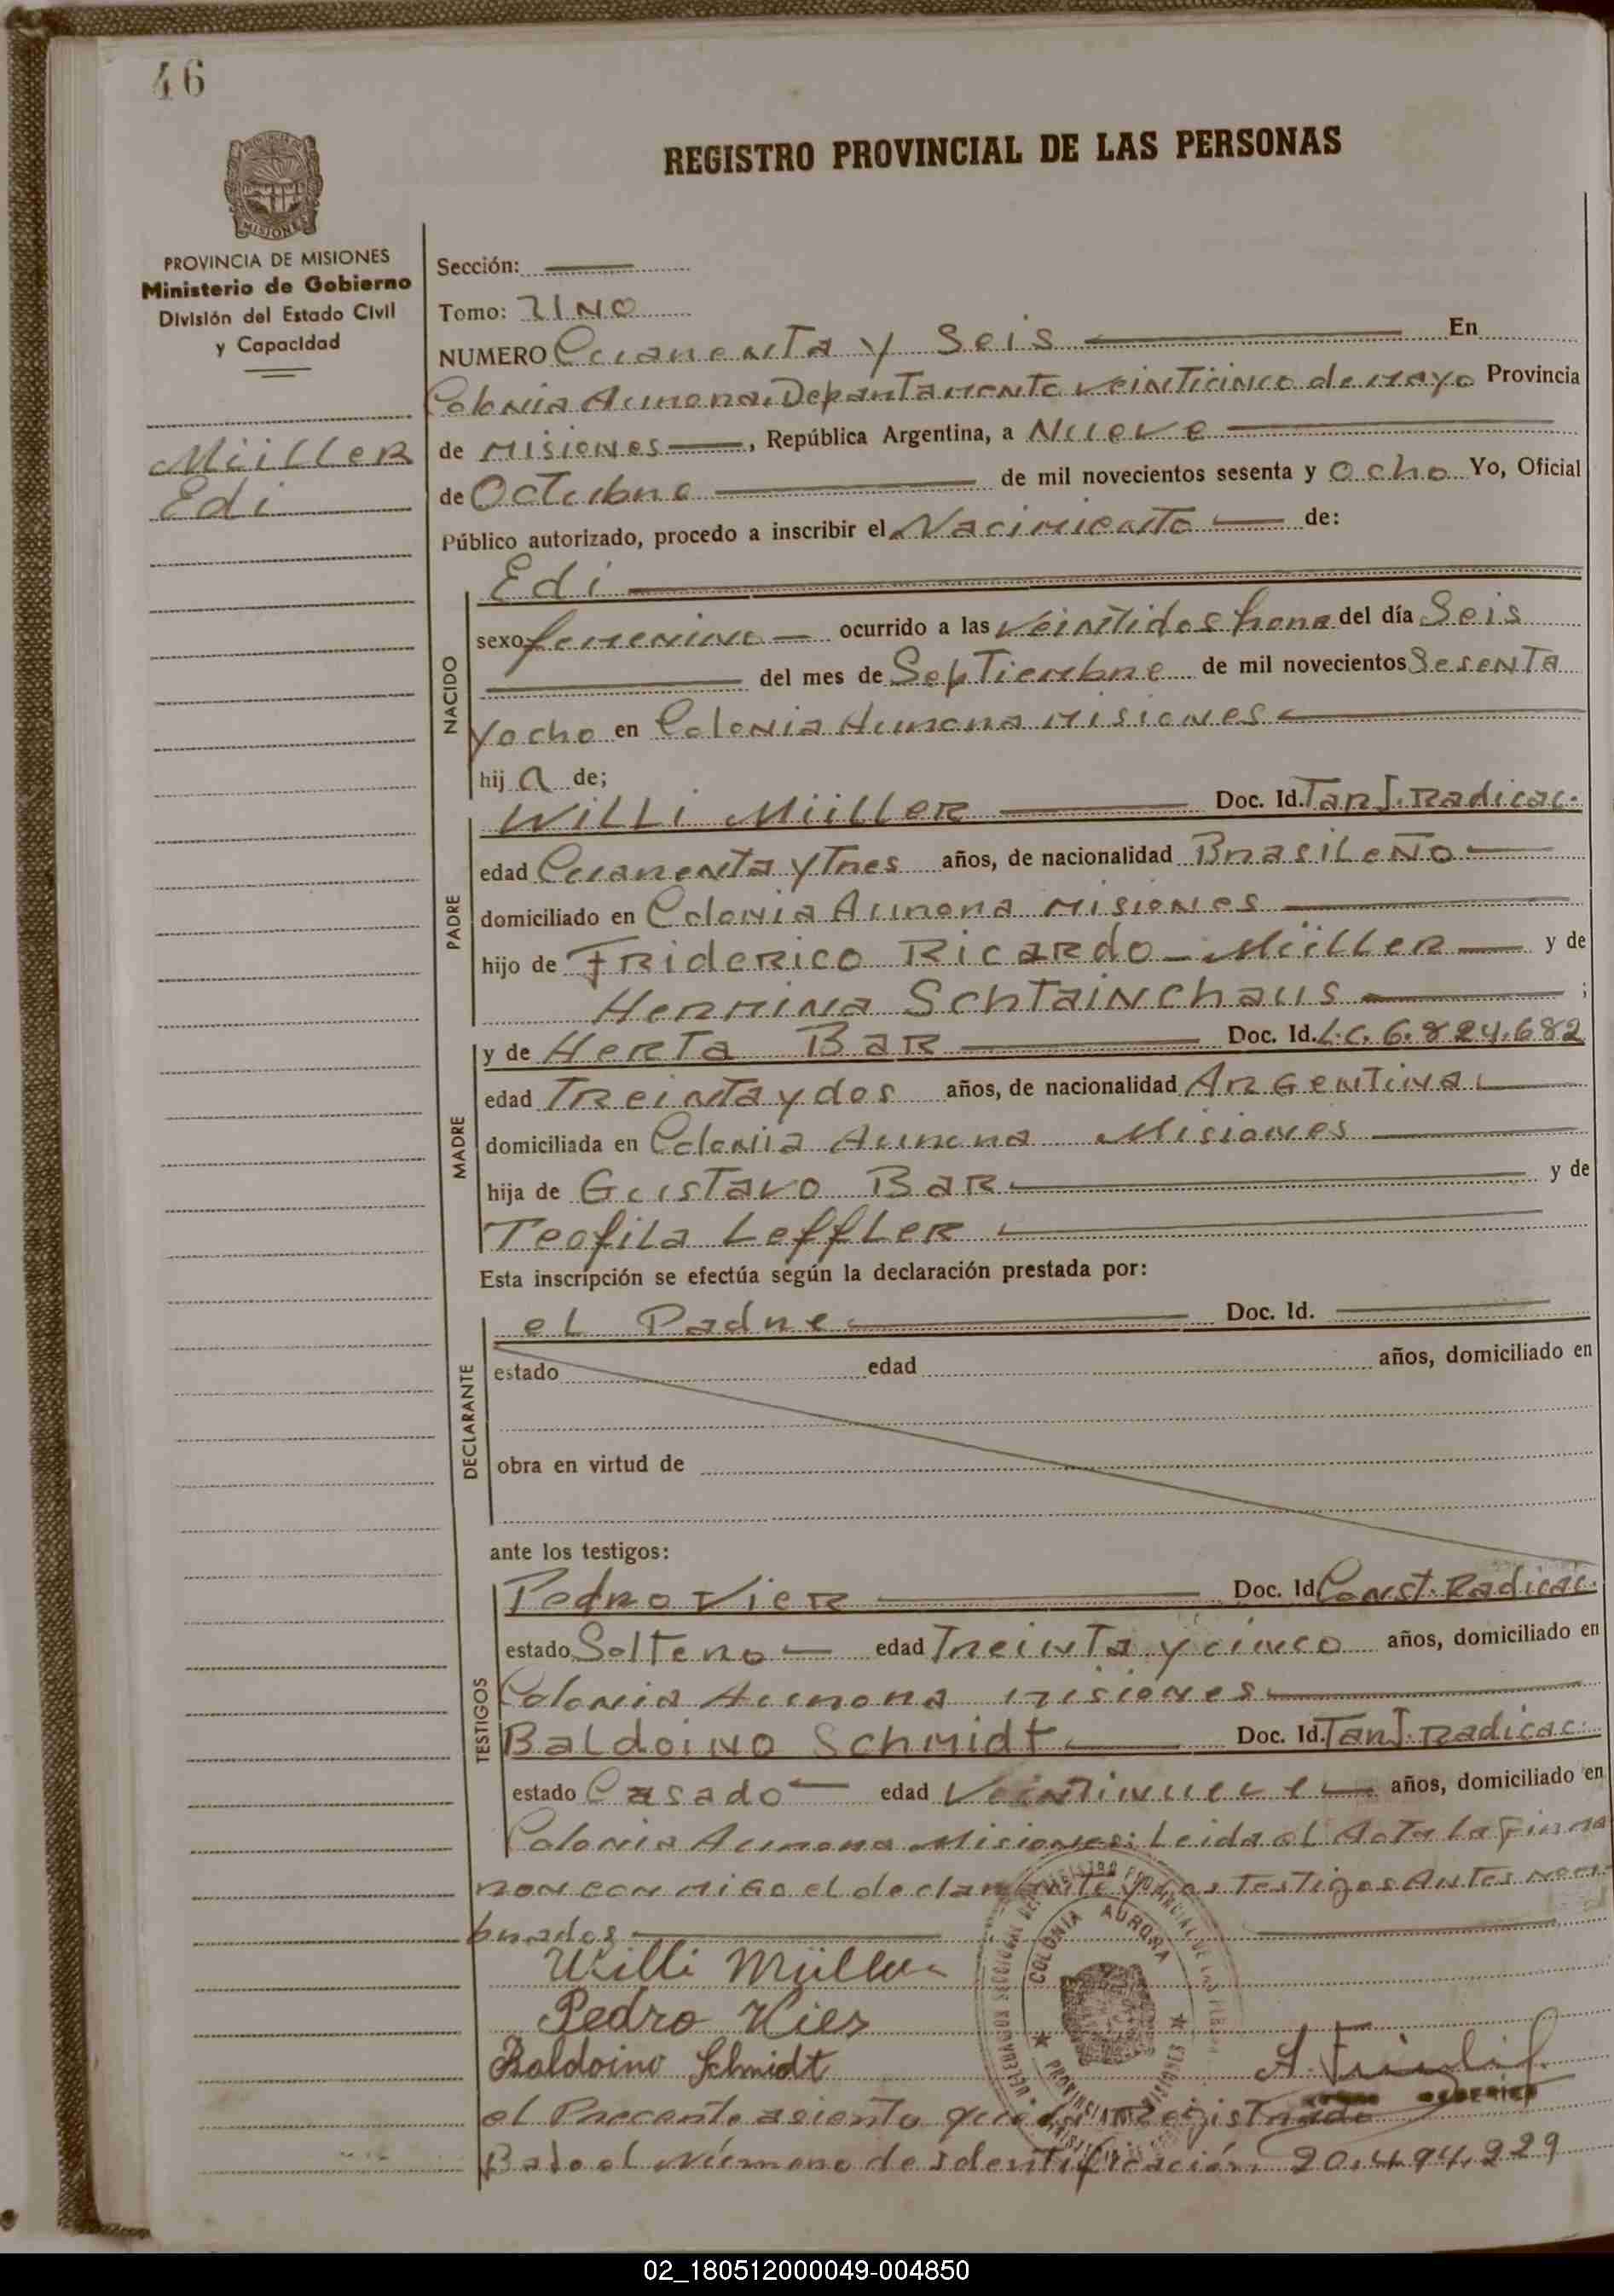 46
MISIONES
REGISTRO PROVINCIAL DE LAS PERSONAS
PROVINCIA DE MISIONES
Ministerio de Gobierno
División del Estado Civil
y Capacidad
Müller
Edi
Sección:
Tomo: UNO
NUMERO Cuarenta y Seis En
Colonia Aurora, Departamento Veinticinco de mayo Provincia
de Misiones, República Argentina, a Nueve
de Octubre de mil novecientos sesenta y Ocho Yo, Oficial
Público autorizado, procedo a inscribir el Nacimiento de:
NACIDO
Edi
sexo femenino ocurrido a las Veintidos hora del día Seis
del mes de Septiembre de mil novecientos Sesenta
y ocho en Colonia Aurora Misiones
hij a de;
PADRE
Willi Müller Doc. Id. Tarj. Radicac.
edad Cuarenta y Tres años, de nacionalidad Brasileño
domiciliado en Colonia Aurora Misiones
hijo de Friderico Ricardo Müller y de
Hermina Schtainchaus ;
MADRE
y de Herta Bar Doc. Id. L.C. 6.824.682
edad Treinta y dos años, de nacionalidad Argentina
domiciliada en Colonia Aurora Misiones
hija de Gustavo Bar y de
Teofila Leffler
Esta inscripción se efectúa según la declaración prestada por:
DECLARANTE
el Padre Doc. Id.
estado edad años, domiciliado en
obra en virtud de
ante los testigos:
TESTIGOS
Pedro Vier Doc. Id Const. Radicac.
estado Soltero edad Treinta y cinco años, domiciliado en
Colonia Aurora Misiones
Baldoino Schmidt Doc. Id. Tarj. Radicac.
estado Casado edad Veintinueve años, domiciliado en
Colonia Aurora Misiones: Leida el Acta la firma
ron con migo el declarante y los Testigos Antes nom
brados
Willi Müller
Pedro Vier
Baldoino Schmidt
COLONIA AURORA
el Precente asiento queda registrado
Bajo el Número de Identificación 20.494.229
02_180512000049-004850